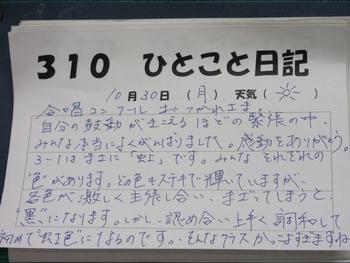 310 ひとこと日記
10月30日 (月) 天気( )
合唱コンクールおつかれさま。
自分の鼓動が生えるほどの緊張の中、
みんな本当によくがんばりました。感動をありがとう。
3-1はまさに「虹」です。みんな それぞれの
"色"があります。どの色もステキで輝いていますが、
各色が激しく主張し合い、まざってしまうと
"黒"になります。しかし、認め合い上手く調和して
初めて"虹色"になるのです。そんなクラスかっこよすぎますね